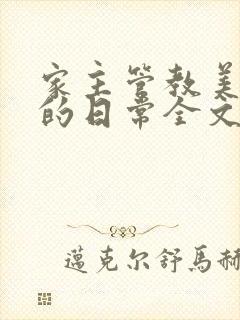 家主管教美
的日常全文
邁克尔舒馬赫